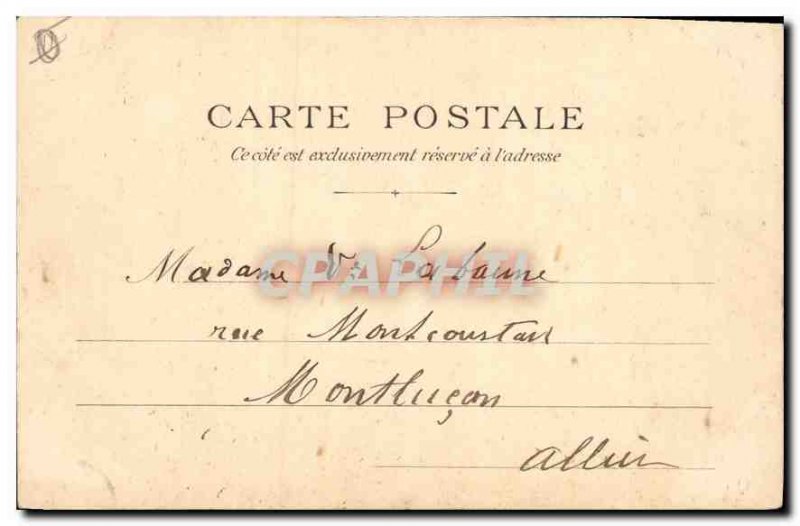 CARTE POSTALE
Ce côté est exclusivement réservé à l'adresse
Madame Vve Labaune
CPAPHIL
rue Montcourtais
Montluçon
Allier